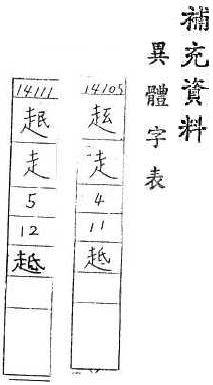 補充資料
異體字表
14105
走
4
11
14111
走
5
12
趆